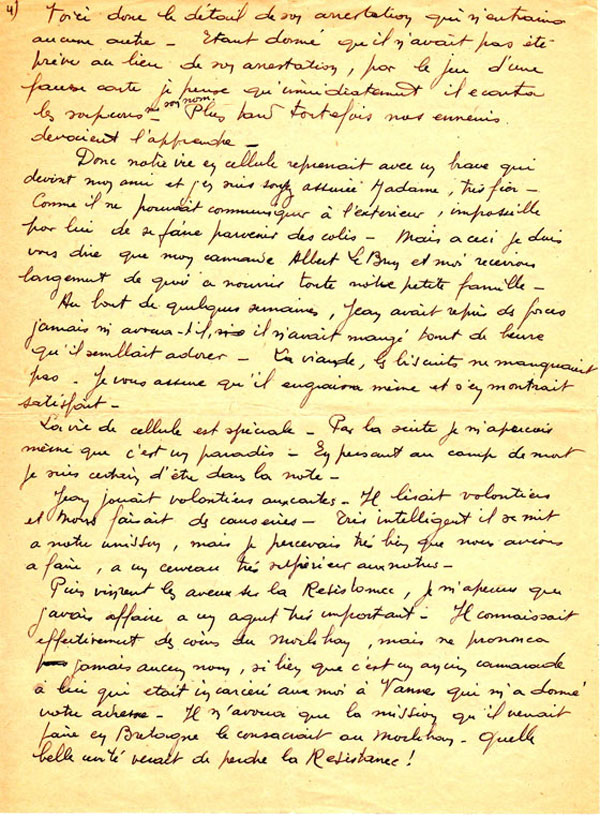 4)
Voici donc le détail de son arrestation qui n'entraina
aucune autre - Etant donné qu'il n'avait pas été
prévu au lieu de son arrestation, par le jeu d'une
fausse carte je pense qu'immédiatement il ecarta
les soupçons son nom. Plus tard toutefois nos ennemis
devaient l'apprendre -
Donc notre vie en cellule reprenait avec un brave qui
devint mon ami et j'en suis soyez assurée Madame, très fier -
Comme il ne pouvait communiquer à l'extérieur, impossible
par lui de se faire parvenir des colis - Mais a ceci je dois
vous dire que mon camarade Albert Le Bruy et moi recevions
largement de quoi a nourrir toute notre petite famille -
Au bout de quelques semaines, Jean avait repris des forces
jamais m'avoua-t-il, il n'avait mangé tant de beurre
qu'il semblait adorer - La viande, les biscuits ne manquaient
pas - Je vous assure qu'il engraissa même et s'en montrait
satisfait -
La vie de cellule est spéciale - Par la suite je m'aperçois
même que c'est un paradis - En pensant au camp de mort
je suis certain d'être dans la note -
Jean jouait volontiers aux cartes - Il lisait volontiers
et nous faisait des causeries - Très intelligent il se mit
a notre unisson, mais je percevais très bien que nous avions
a faire, a un cerveau très supérieur aux notres -
Puis vinrent les aveux sur la Resistance, je m'aperçus que
j'avais affaire a un agent très important - Il connaissait
effectivement des coins du Morbihan, mais ne prononca
jamais aucun nom, si bien que c'est un ancien camarade
à lui qui etait incarcéré avec moi à Vannes qui m'a donné
votre adresse - Il n'avoua que la mission qu'il venait
faire en Bretagne le consacrait au Morbihan - Quelle
belle unité venait de perdre la Resistance !